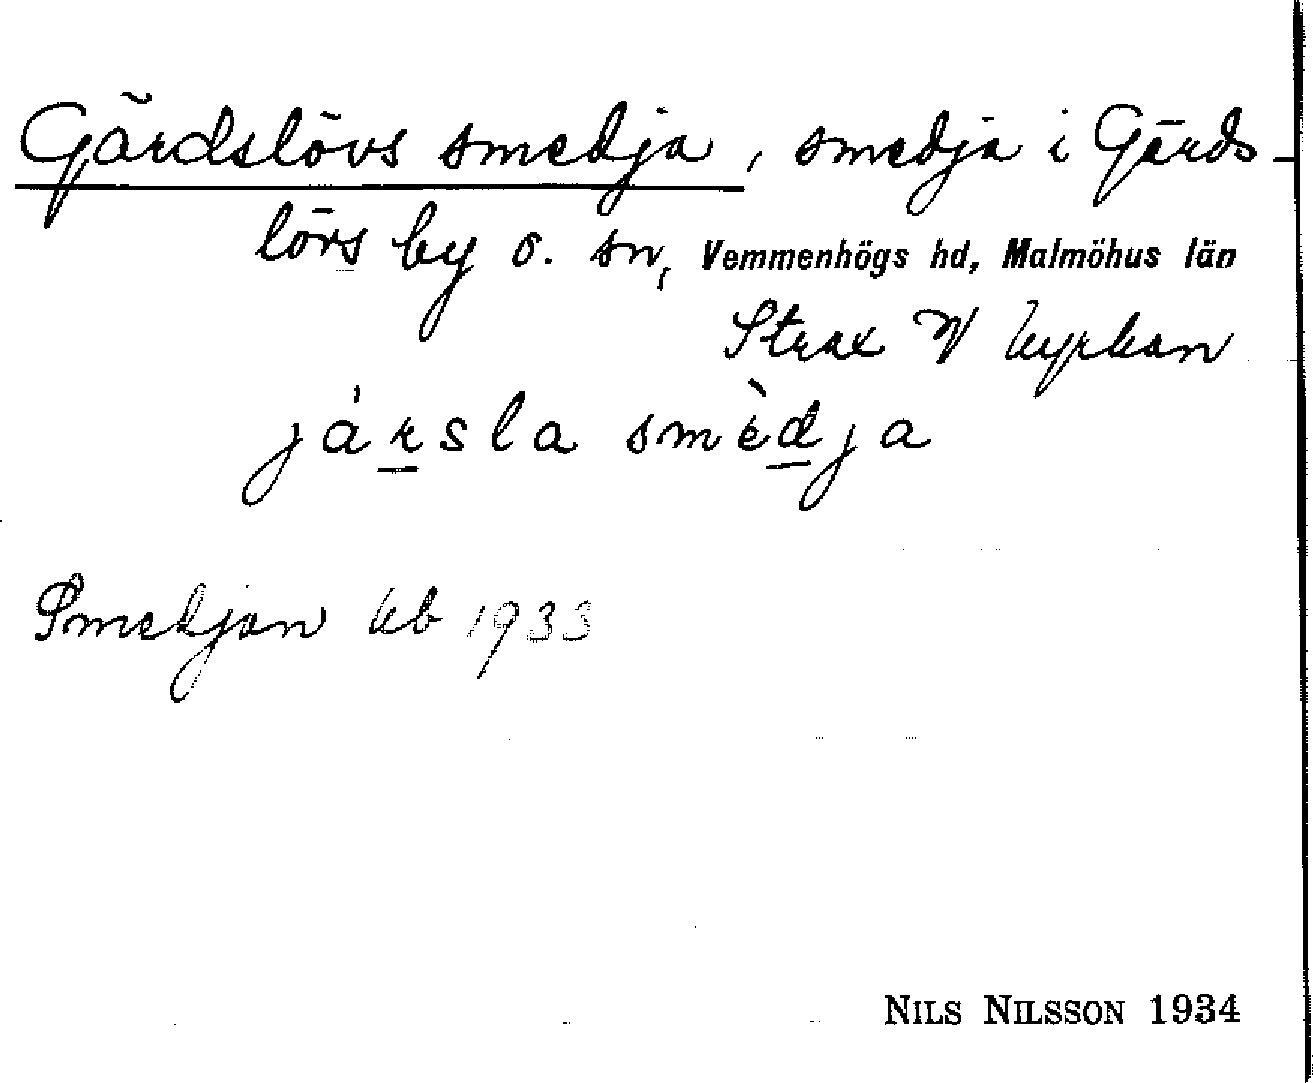 Gärdslövs smedja, smedja i Gärds-
lövs by o. sn, Vemmenhögs hd, Malmöhus län
Strax V kyrkan
jársla smèdja
Smedjan kb 1933
NILS NILSSON 1934